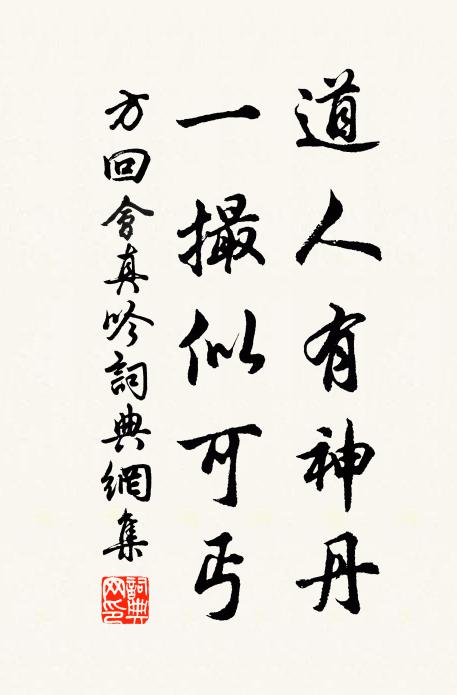 道人有神丹
一撮似可丐
方回會真吟詞典網集
詞典網印